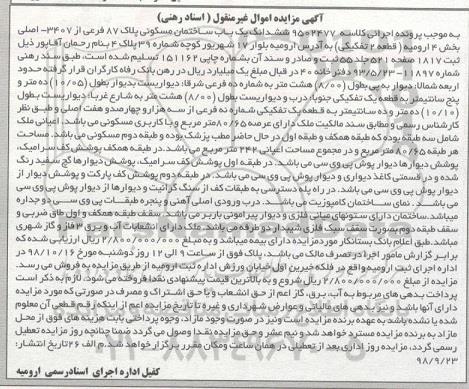 آگهی مزایده اموال غیرمنقول ( اسناد رهنی )
به موجب پرونده اجرائی کلاسه ۹۵۰۲۴۷۷ ششدانگ یک باب ساختمان مسکونی پلاک ۸۷ فرعی از ۳۴۰۷- اصلی
بخش ۴ ارومیه ( قطعه ۲ تفکیکی) به آدرس ارومیه بلوار ۱۷ شهریور کوچه شماره ۳۹ پلاک ۴ بنام رحمان آقاپور ذیل
ثبت ۱۸۱۷ صفحه ۵۲۱ جلد ۵۵ ثبت و صادر و سند آن بشماره چاپی ۱۵۱۱۶۲ تسلیم شده است، طبق سند رهنی
شماره ۱۱۸۹۷- ۹۳/۵/۲۳ دفترخانه ۴۰ در قبال مبلغ یک میلیارد ریال در رهن بانک رفاه کارگران قرار گرفته حدود
اربعه شمالا: دیوار به پی بطول (۸/۰۰) هشت متر به شماره ده فرعی شرقا: دیواریست بدیوار بطول (۱۰/۰۵) ده متر و
پنج سانتیمتر به قطعه یک تفکیکی جنوبا: درب و دیواریست بطول (۸/۰۰) هشت متر به شارع غربا: دیواریست بطول
(۱۰/۱۰) ده متر و ده سانتیمتر به قطعه یک تفکیکی شماره نه فرعی از سه هزار و چهارصد و هفت اصلی و طبق نظر
کارشناس رسمی و مطابق سند مالکیت ملک دارای عرصه ۸۰/۶۵ متر مربع و با کاربری مسکونی می باشد. اعیانی ملک
شامل سه طبقه بوده که طبقه همکف و طبقه اول در حال حاضر مطب پزشک بوده و طبقه دوم مسکونی می باشد. مساحت
هر طبقه ۸۰/۶۵ متر مربع و در مجموع مساحت اعیانی ۲۴۲ متر مربع می باشد. در طبقه همکف پوشش کف سرامیک،
پوشش دیوارها دیوار پوش پی وی سی می باشد. در طبقه اول پوشش کف سرامیک، پوشش دیوارها گچ سفید رنگ
شده و در قسمتی کاغذ دیواری و دیوار پوش پی وی سی می باشد. در طبقه دوم پوشش کف پارکت و پوشش دیوار از
دیوار پوش پی وی سی می باشد. در راه پله دسترسی به طبقات کف از سنگ گرانیت و دیوارها از دیوار پوش پی وی سی
می باشد. نمای ساختمان کامپوزیت می باشد. درب ورودی اصلی آهنی و پنجره طبقات پی وی سی و جداره
میباشد. ساختمان دارای ستونهای میانی فلزی و دیوار پیرامونی باربر می باشد. سقف طبقه همکف و اول طاق ضربی و
سقف طبقه دوم بصورت سقف سبک فلزی شیبدار دو طرفه می باشد. ملک دارای انشعابات آب و برق ۳ فاز و گاز شهری
میباشد. طبق اعلام بانک بستانکار مورد مزایده دارای بیمه میباشد و به مبلغ ۲/۸۰۰/۰۰۰/۰۰۰ ریال ارزیابی شده که
برابر گزارش مامور اجرا در تصرف مالک می باشد. پلاک فوق از ساعت ۹ الی ۱۲ روز دوشنبه مورخ ۹۸/۱۰/۱۶ در
اداره اجرای ثبت ارومیه واقع در فلکه خیرین اول خیابان ورزش اداره ثبت ارومیه از طریق مزایده به فروش می رسد.
مزایده از مبلغ ۲/۸۰۰/۰۰۰/۰۰۰ ریال شروع و به بالاترین قیمت پیشنهادی نقدا فروخته می شود. لازم به ذکر است
پرداخت بدهی های مربوط به آب، برق، گاز اعم از حق انشعاب و یا حق اشتراک و مصرف در صورتی که مورد مزایده
دارای آنها باشد و نیز بدهی های مالیاتی و عوارض شهرداری و غیره تا تاریخ مزایده اعم از اینکه رقم قطعی آن معلوم
شده یا نشده باشد به عهده برنده مزایده است و نیز در صورت وجود مازاد، وجوه پرداختی بابت هزینه های فوق از محل
مازاد به برنده مزایده مسترد خواهد شد و نیم عشر و حق مزایده نقدا وصول می گردد. ضمنا چنانچه روز مزایده تعطیل
رسمی گردد، مزایده روز اداری بعد از تعطیلی در همان ساعت و مکان مقرر برگزار خواهد شد. م الف ۲۶ تاریخ انتشار:
۹۸/۹/۲۳
کفیل اداره اجرای اسناد رسمی ارومیه